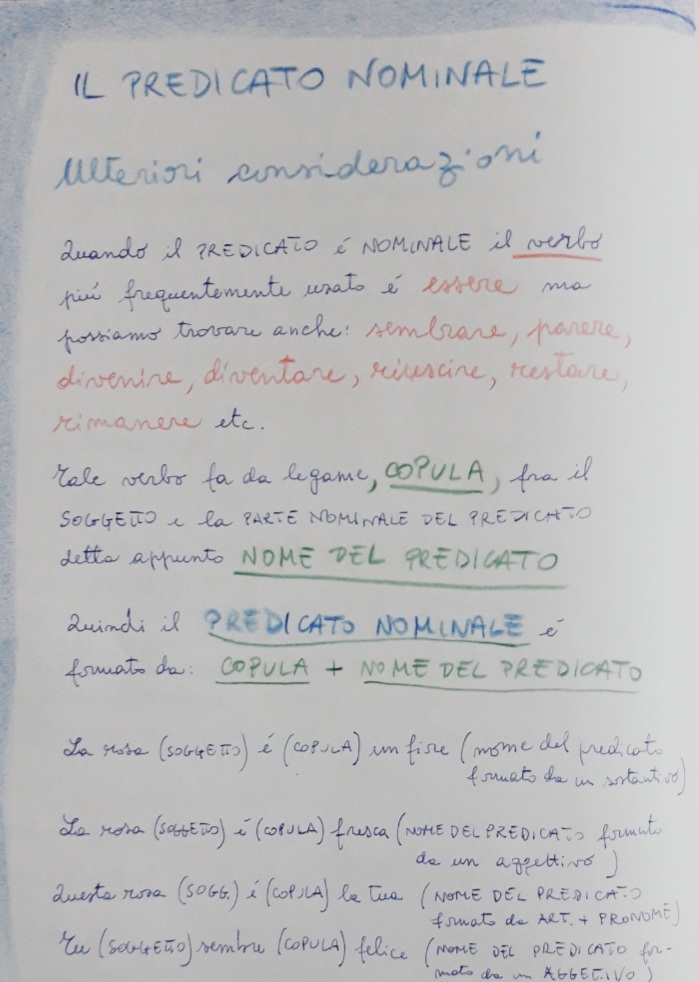 IL PREDICATO NOMINALE
Ulteriori considerazioni
Quando il PREDICATO é NOMINALE il verbo
piú frequentemente usato é essere ma
possiamo trovare anche: sembrare, parere,
divenire, diventare, riuscire, restare,
rimanere etc.
Tale verbo fa da legame, COPULA, fra il
SOGGETTO e la PARTE NOMINALE DEL PREDICATO
detta appunto NOME DEL PREDICATO
Quindi il PREDICATO NOMINALE é
formato da: COPULA + NOME DEL PREDICATO
La rosa (SOGGETTO) é (COPULA) un fiore (nome del predicato
formato da un sostantivo)
La rosa (SOGGETTO) é (COPULA) fresca (NOME DEL PREDICATO formato
da un aggettivo)
Questa rosa (SOGG.) é (COPULA) la tua (NOME DEL PREDICATO
formato da ART. + PRONOME)
Tu (SOGGETTO) sembri (COPULA) felice (NOME DEL PREDICATO for-
mato da un AGGETTIVO)